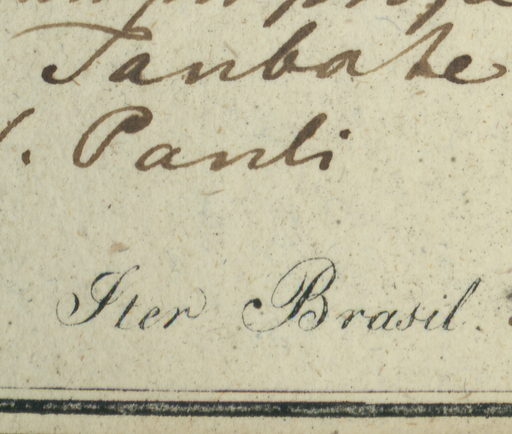 Taubate
. Pauli
Iter Brasil.